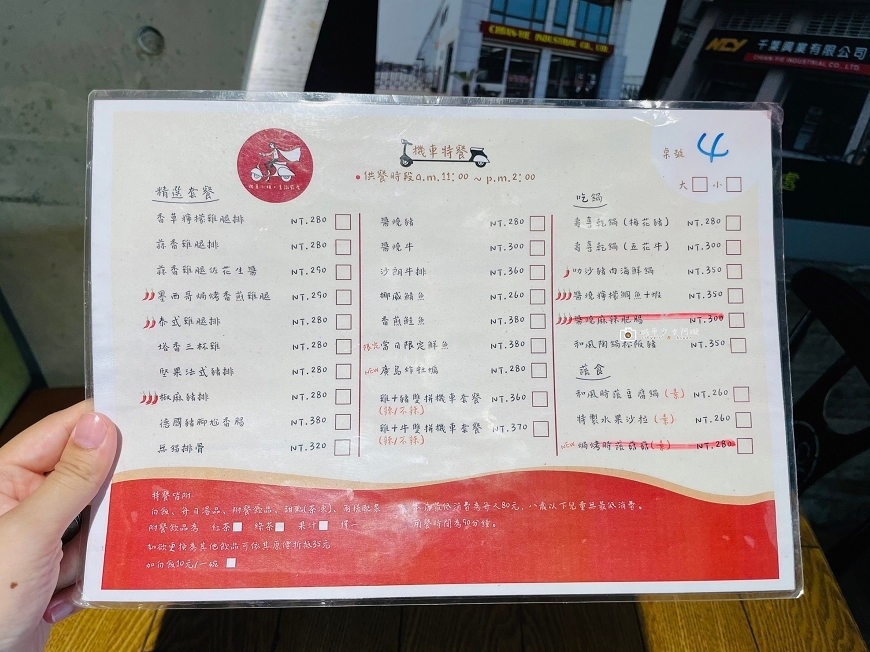 CHUAN-YIE INDUSTRIAL CO., LTD
NCY 千葉興業有限公司
CHUAN-YIE INDUSTRIAL CO., LTD
機車特餐
供餐時段a.m.11:00 ~ p.m.2:00
桌號 4
大 小
精選套餐
香草檸檬雞腿排 NT.280
蒜香雞腿排 NT.280
蒜香雞腿佐花生醬 NT.290
墨西哥焗烤香煎雞腿 NT.290
泰式雞腿排 NT.280
塔香三杯雞 NT.280
堅果法式豬排 NT.280
椒麻豬排 NT.280
德國豬腳拉香腸 NT.380
無錫排骨 NT.320
醬燒豬 NT.280
醬燒牛 NT.300
沙朗牛排 NT.360
挪威鯖魚 NT.260
香煎鮭魚 NT.380
限定 當日限定鮮魚 NT.380
NEW 廣島炸牡蠣 NT.280
雞+豬雙拼機車套餐 NT.360
(辣/不辣)
雞+牛雙拼機車套餐 NT.370
(辣/不辣)
吃鍋
壽喜乾鍋 (梅花豬) NT.280
壽喜乾鍋 (五花牛) NT.300
叻沙豬肉海鮮鍋 NT.350
醬燒檸檬鯛魚+蝦 NT.350
醬燒麻辣肥腸 NT.300
和風陶鍋松阪豬 NT.350
蔬食
和風時蔬豆腐鍋 (素) NT.260
特製水果沙拉 (素) NT.260
NEW 焗烤時蔬蘑菇(素) NT.280
特餐皆附
白飯、每日湯品、附餐飲品、甜點(茶凍)、兩樣配菜
附餐飲品為 紅茶 綠茶 果汁 擇一
如欲更換為其他飲品可依其原價折抵35元
加白飯10元/一碗
本店最低消費為每人80元，八歲以下兒童無最低消費。
用餐時間為90分鐘。